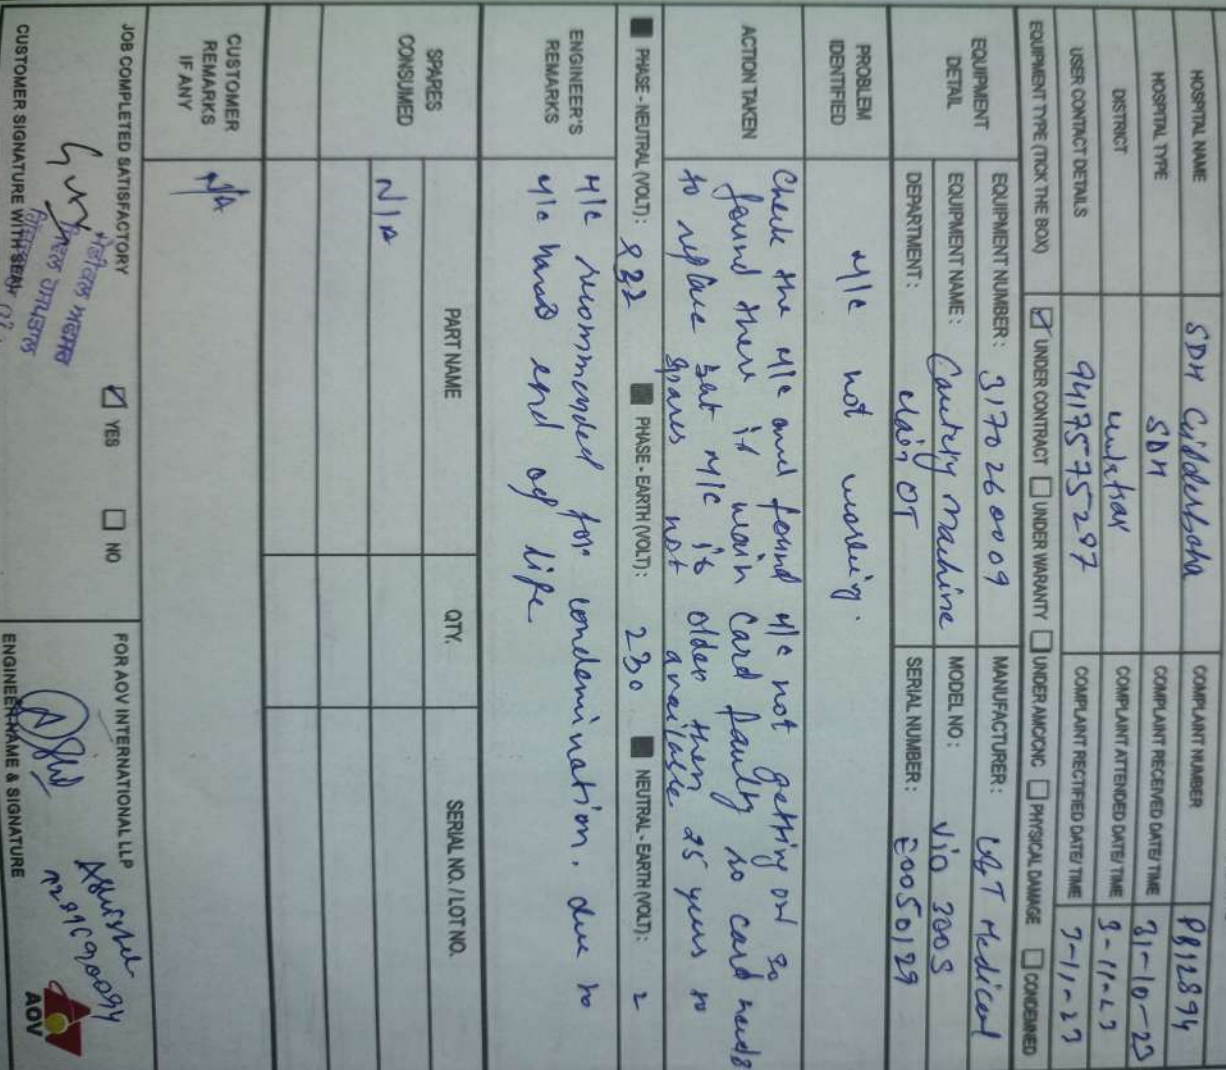 HOSPITAL NAME SDH Gidderbaha COMPLAINT NUMBER PB12894
HOSPITAL TYPE SDH COMPLAINT RECEIVED DATE/ TIME 31-10-23
DISTRICT COMPLAINT ATTENDED DATE/ TIME 3-11-23
USER CONTACT DETAILS 9417575297 COMPLAINT RECTIFIED DATE/ TIME 3-11-23
EQUIPMENT TYPE (TICK THE BOX) ☑ UNDER CONTRACT ☐ UNDER WARANTY ☐ UNDER AMC/CNC ☐ PHYSICAL DAMAGE ☐ CONDEMNED
EQUIPMENT DETAIL
EQUIPMENT NUMBER : 3170260009 MANUFACTURER : L&T Medical
EQUIPMENT NAME : Cautery Machine MODEL NO : Vio 300S
DEPARTMENT : Main OT SERIAL NUMBER : E0050129
PROBLEM IDENTIFIED
M/c not working.
ACTION TAKEN
Check the M/c and found M/c not getting on so
found there is main card faulty so card needs
to replace but M/c is older then 25 years so
spares not available
PHASE - NEUTRAL (VOLT) : PHASE - EARTH (VOLT) : 230 NEUTRAL - EARTH (VOLT) : 2
ENGINEER'S REMARKS
M/c recommended for condemination. due to
M/c end of life
SPARES CONSUMED
PART NAME QTY. SERIAL NO. / LOT NO.
N/A
CUSTOMER REMARKS IF ANY
N/A
JOB COMPLETED SATISFACTORY ☑ YES ☐ NO
CUSTOMER SIGNATURE WITH SEAL
FOR AOV INTERNATIONAL LLP
Ashish
ENGINEER NAME & SIGNATURE
AOV